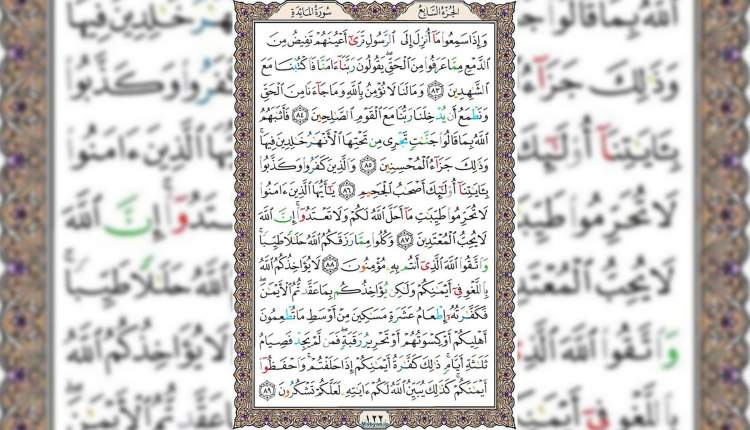 الجزء السابع
سورة المائدة
وَإِذَا سَمِعُوا مَا أُنزِلَ إِلَى الرَّسُولِ تَرَىٰ أَعْيُنَهُمْ تَفِيضُ مِنَ
الدَّمْعِ مِمَّا عَرَفُوا مِنَ الْحَقِّ يَقُولُونَ رَبَّنَا ءَامَنَّا فَاكْتُبْنَا مَعَ
الشَّاهِدِينَ ٨٣ وَمَا لَنَا لَا نُؤْمِنُ بِاللَّهِ وَمَا جَاءَنَا مِنَ الْحَقِّ
وَنَطْمَعُ أَن يُدْخِلَنَا رَبُّنَا مَعَ الْقَوْمِ الصَّالِحِينَ ٨٤ فَأَثَابَهُمُ
اللَّهُ بِمَا قَالُوا جَنَّاتٍ تَجْرِي مِن تَحْتِهَا الْأَنْهَارُ خَالِدِينَ فِيهَا
وَذَٰلِكَ جَزَاءُ الْمُحْسِنِينَ ٨٥ وَالَّذِينَ كَفَرُوا وَكَذَّبُوا
بِـَٔايَاتِنَا أُولَٰئِكَ أَصْحَابُ الْجَحِيمِ ٨٦ يَا أَيُّهَا الَّذِينَ ءَامَنُوا
لَا تُحَرِّمُوا طَيِّبَاتِ مَا أَحَلَّ اللَّهُ لَكُمْ وَلَا تَعْتَدُوا إِنَّ اللَّهَ
لَا يُحِبُّ الْمُعْتَدِينَ ٨٧ وَكُلُوا مِمَّا رَزَقَكُمُ اللَّهُ حَلَالًا طَيِّبًا
وَاتَّقُوا اللَّهَ الَّذِي أَنتُم بِهِ مُؤْمِنُونَ ٨٨ لَا يُؤَاخِذُكُمُ اللَّهُ
بِاللَّغْوِ فِي أَيْمَانِكُمْ وَلَٰكِن يُؤَاخِذُكُم بِمَا عَقَّدتُّمُ الْأَيْمَانَ
فَكَفَّارَتُهُ إِطْعَامُ عَشَرَةِ مَسَاكِينَ مِنْ أَوْسَطِ مَا تُطْعِمُونَ
أَهْلِيكُمْ أَوْ كِسْوَتُهُمْ أَوْ تَحْرِيرُ رَقَبَةٍ فَمَن لَّمْ يَجِدْ فَصِيَامُ
ثَلَاثَةِ أَيَّامٍ ذَٰلِكَ كَفَّارَةُ أَيْمَانِكُمْ إِذَا حَلَفْتُمْ وَاحْفَظُوا
أَيْمَانَكُمْ كَذَٰلِكَ يُبَيِّنُ اللَّهُ لَكُمْ ءَايَاتِهِ لَعَلَّكُمْ تَشْكُرُونَ ٨٩
١٢٢